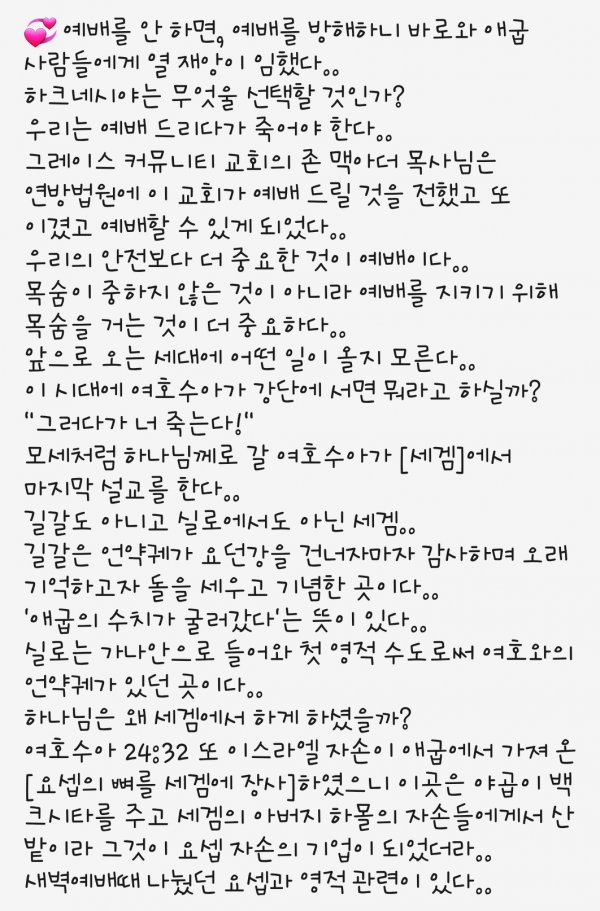 💞 예배를 안 하면, 예배를 방해하니 바로와 애굽
사람들에게 열 재앙이 임했다。。
하크네시야는 무엇울 선택할 것인가?
우리는 예배 드리다가 죽어야 한다。。
그레이스 커뮤니티 교회의 존 맥아더 목사님은
연방법원에 이 교회가 예배 드릴 것을 전했고 또
이겼고 예배할 수 있게 되었다。。
우리의 안전보다 더 중요한 것이 예배이다。。
목숨이 중하지 않은 것이 아니라 예배를 지키기 위해
목숨을 거는 것이 더 중요하다。。
앞으로 오는 세대에 어떤 일이 올지 모른다。。
이 시대에 여호수아가 강단에 서면 뭐라고 하실까?
"그러다가 너 죽는다!"
모세처럼 하나님께로 갈 여호수아가 [세겜]에서
마지막 설교를 한다。。
길갈도 아니고 실로에서도 아닌 세겜。。
길갈은 언약궤가 요던강을 건너자마자 감사하며 오래
기억하고자 돌을 세우고 기념한 곳이다。。
'애굽의 수치가 굴러갔다'는 뜻이 있다。。
실로는 가나안으로 들어와 첫 영적 수도로써 여호와의
언약궤가 있던 곳이다。。
하나님은 왜 세겜에서 하게 하셨을까?
여호수아 24:32 또 이스라엘 자손이 애굽에서 가져 온
[요셉의 뼈를 세겜에 장사]하였으니 이곳은 야곱이 백
크시타를 주고 세겜의 아버지 하몰의 자손들에게서 산
밭이라 그것이 요셉 자손의 기업이 되었더라。。
새벽예배때 나눴던 요셉과 영적 관련이 있다。。